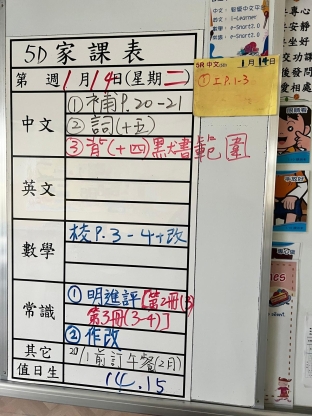 5D 家課表
第 週 1月14日(星期二)
中文
①補P.20-21
②詞(十五)
③背(十四)黑犬書範圍
英文
數學
校P.3-4+改
常識
①明進評[第2冊(3)
第3冊(3-4)]
②作改
其它
/1前訂午餐(2月)
值日生
14.15
5R 中文 1月14日
①工P.1-3
中文:
英文: i-Learner
數學: eSmart2.0
常識: eSmart2.0